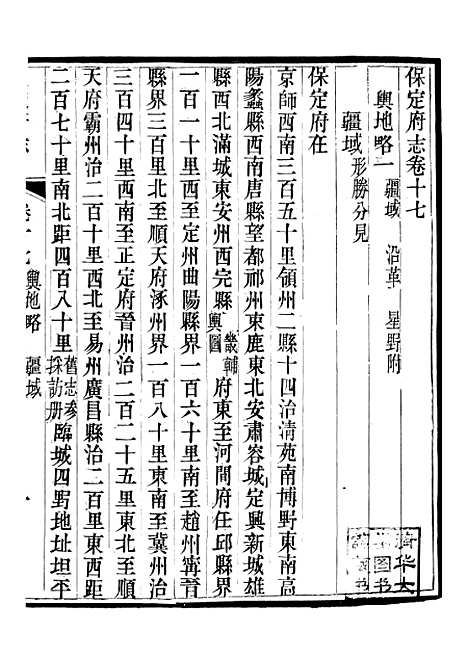 保定府志卷十七
輿地略一 疆域 沿革 星野附
疆域形勝分見
保定府在
京師西南三百五十里領州二縣十四治清苑南博野東南高
陽蠡縣西南唐縣望都祁州東鹿東北安肅容城定興新城雄
縣西北滿城東安州西完縣畿輔輿圖府東至河間府任邱縣界
一百一十里西至定州曲陽縣界一百六十里南至趙州甯晉
縣界三百里北至順天府涿州界一百八十里東南至冀州治
三百四十里西南至正定府晉州治二百二十五里東北至順
天府霸州治二百一十里西北至易州廣昌縣治二百里東西距
二百七十里南北距四百八十里舊志參採訪册臨城四野地址坦平
卷十七 輿地略 疆域 一